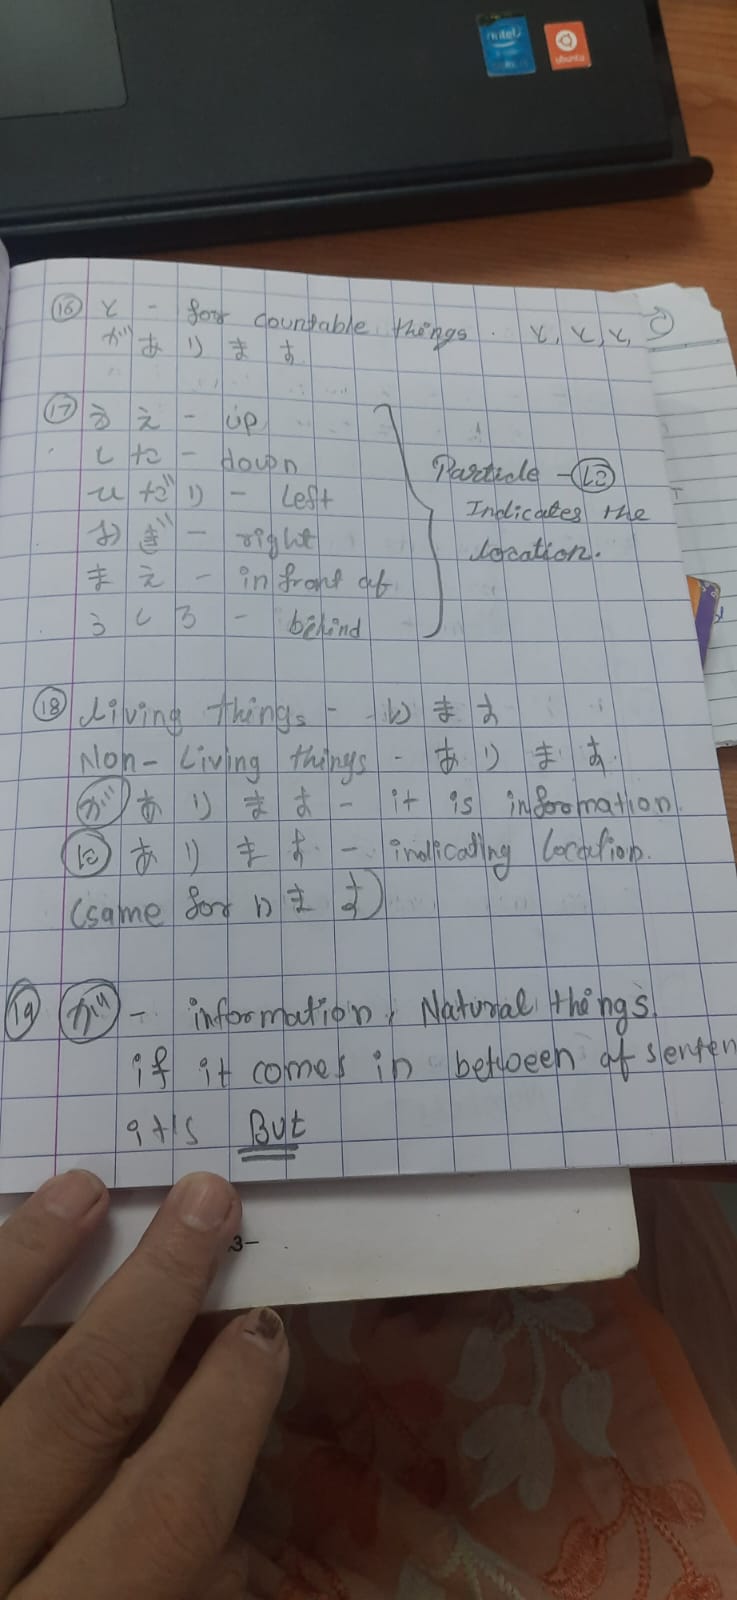 intel
ubuntu
⑯ と - for countable things. と, と, と,
が あ り ま す
⑰ うえ - up
した - down
ひだり - Left
みぎ - right
まえ - infront of
うしろ - behind
Particle - に
Indicates the
location.
⑱ Living things - います
Non-Living things - あります.
が あります - it is information
に あります - indicating location.
(same for います)
⑲ が - information, Natural things.
if it comes in between of senten
it is But
3-